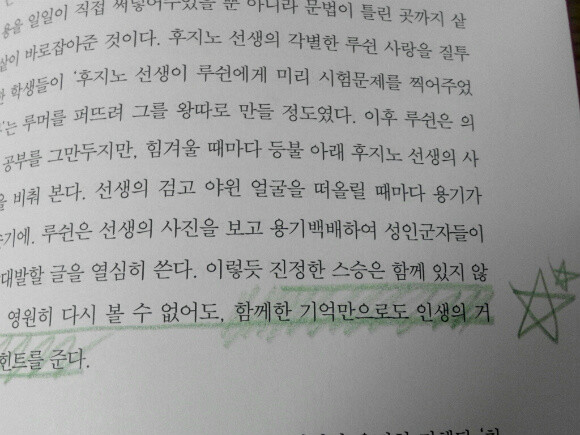 용을 일일이 직접 써넣어주었을 뿐 아니라 문법이 틀린 곳까지 샅
샅이 바로잡아준 것이다. 후지노 선생의 각별한 루쉰 사랑을 질투
한 학생들이 ‘후지노 선생이 루쉰에게 미리 시험문제를 찍어주었
는 루머를 퍼뜨려 그를 왕따로 만들 정도였다. 이후 루쉰은 의
공부를 그만두지만, 힘겨울 때마다 등불 아래 후지노 선생의 사
을 비춰 본다. 선생의 검고 야윈 얼굴을 떠올릴 때마다 용기가
기에. 루쉰은 선생의 사진을 보고 용기백배하여 성인군자들이
대발할 글을 열심히 쓴다. 이렇듯 진정한 스승은 함께 있지 않
영원히 다시 볼 수 없어도, 함께한 기억만으로도 인생의 거
힌트를 준다.